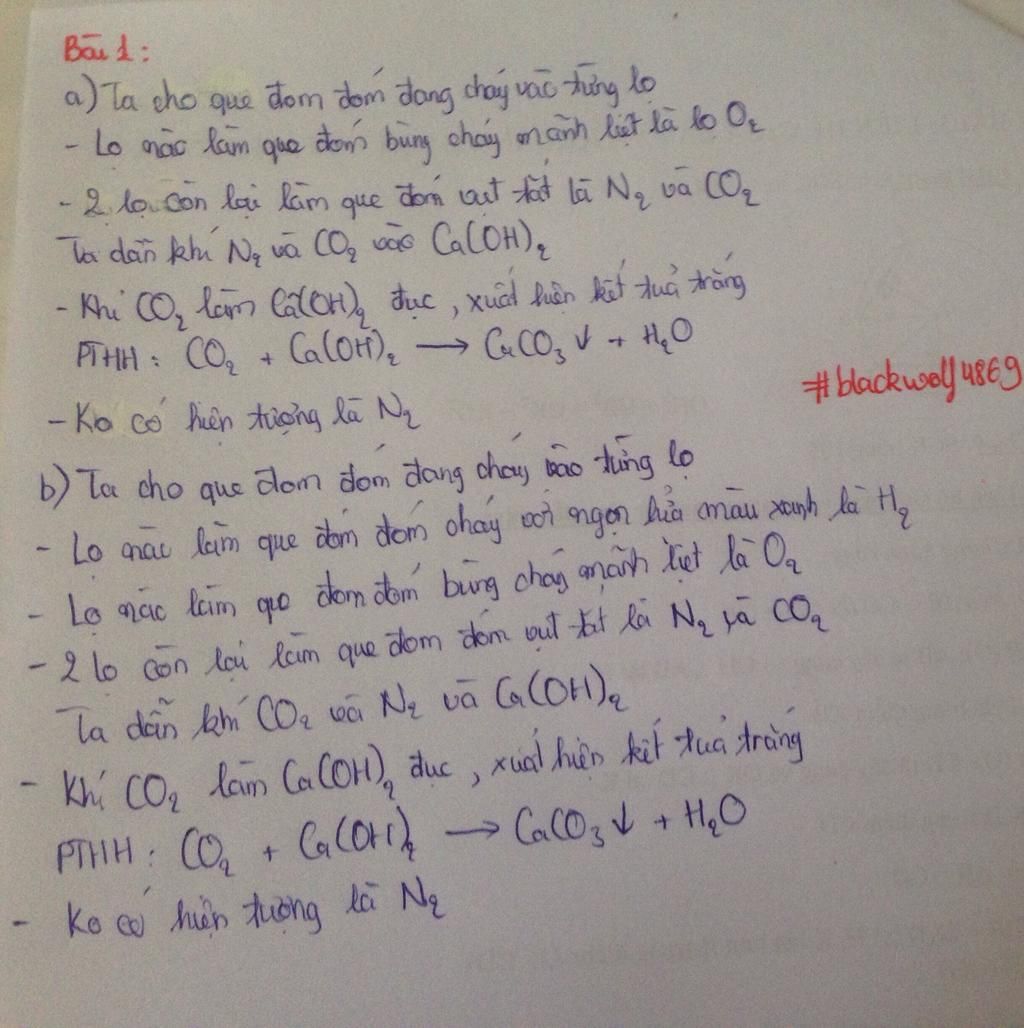 Bài 1:
a) Ta cho que đom đóm đang cháy vào từng lọ
- Lọ nào làm que đóm bùng cháy mãnh liệt là lọ O₂
- 2 lọ còn lại làm que đóm vụt tắt là N₂ và CO₂
Ta dẫn khí N₂ và CO₂ vào Ca(OH)₂
- Khí CO₂ làm Ca(OH)₂ đục, xuất hiện kết tủa trắng
PTHH: CO₂ + Ca(OH)₂ → CaCO₃↓ + H₂O
#blackwolf4869
- Ko có hiện tượng là N₂
b) Ta cho que đom đóm đang cháy vào từng lọ
- Lọ nào làm que đom đóm cháy với ngọn lửa màu xanh là H₂
- Lọ nào làm que đom đóm bùng cháy mãnh liệt là O₂
- 2 lọ còn lại làm que đom đóm vụt tắt là N₂ và CO₂
Ta dẫn khí CO₂ và N₂ và Ca(OH)₂
- Khí CO₂ làm Ca(OH)₂ đục, xuất hiện kết tủa trắng
PTHH: CO₂ + Ca(OH)₂ → CaCO₃↓ + H₂O
- Ko có hiện tượng là N₂